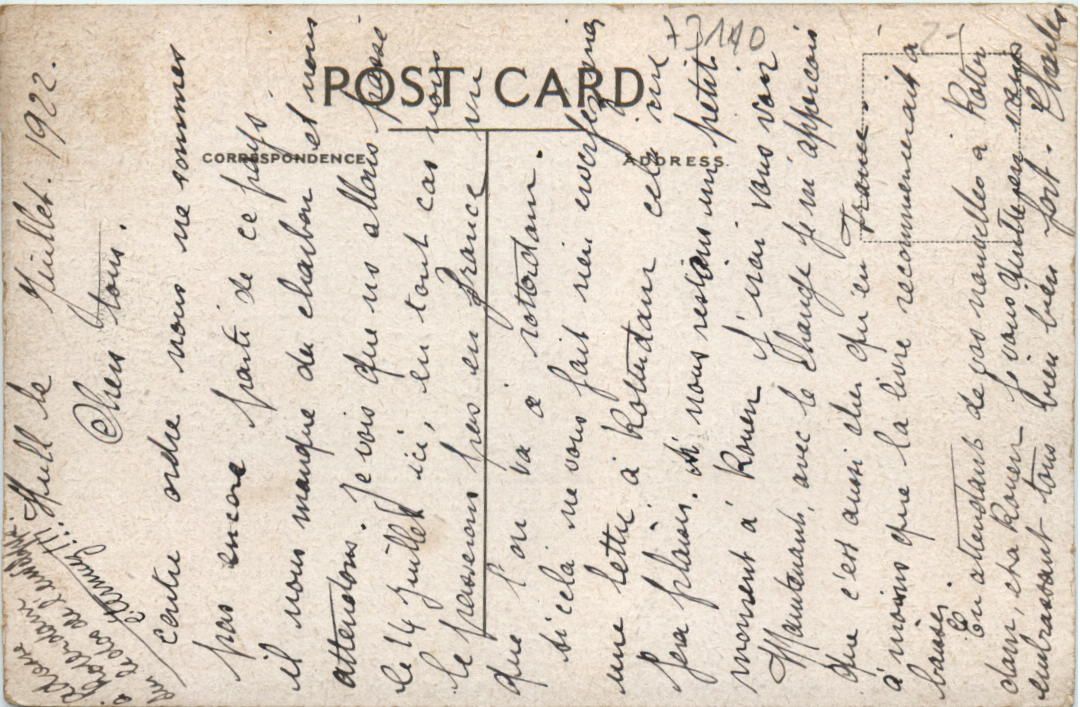 POST CARD
CORRESPONDENCE
ADDRESS.
+3140
2-
Hull le Juillet. 1922.
Chers tous.
contre ordre nous ne sommes
pas encore parti de ce pays.
il nous manque du charbon et nous
attendons. Je vois que ns allons passé
le 14 Juillet ici, en tout cas nous
le passerons pas en France vu
que l'on va à rotterdam.
si cela ne vous fait rien envoyez
une lettre à Rotterdam cela me
fera plaisir. si nous restons un petit
moment à Rouen j'irai vous voir
Maintenant, avec le Change je m'apperçois
que c'est aussi cher qu'en France.
à moins que la livre recommencerait à
baisser.
En attendant de vos nouvelles à Rotter
dam, et à Rouen je vous quitte en vous
embrassant tous bien bien fort. Charles
à Rotterdam